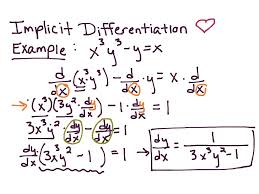 Implicit Differentiation ♡
Example: x³y³-y=x
d/dx(x³·y³)-d/dx·y=x·d/dx
→(x³)(3y²·dy/dx)-1·dy/dx=1
3x³y²·dy/dx-dy/dx=1
dy/dx(3x³y²-1)=1→ dy/dx=1/(3x³y²-1)